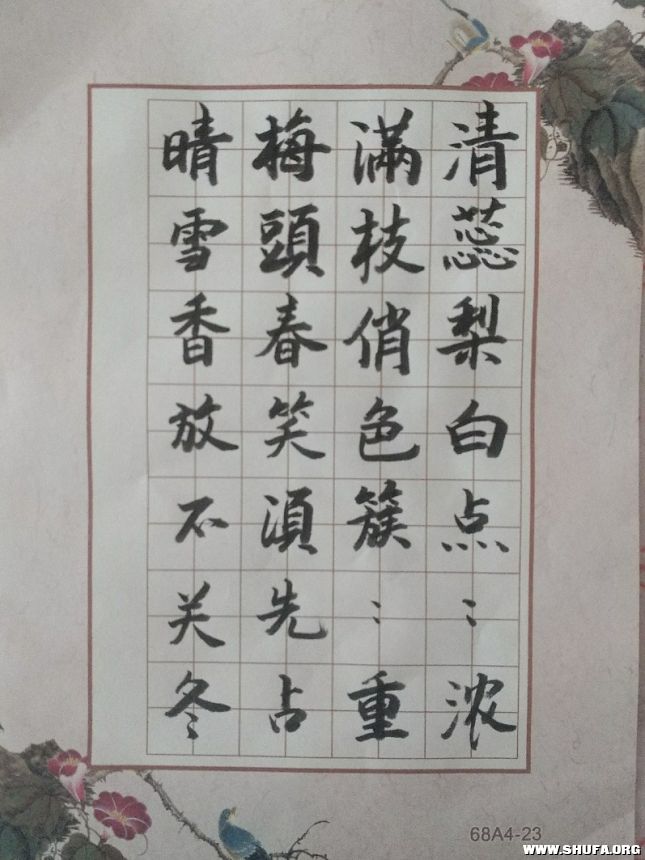 清蕊梨白点：浓
满枝俏色簇：重
梅頭春笑須先占
晴雪香放不关冬
68A4-23
WWW.SHUFA.ORG